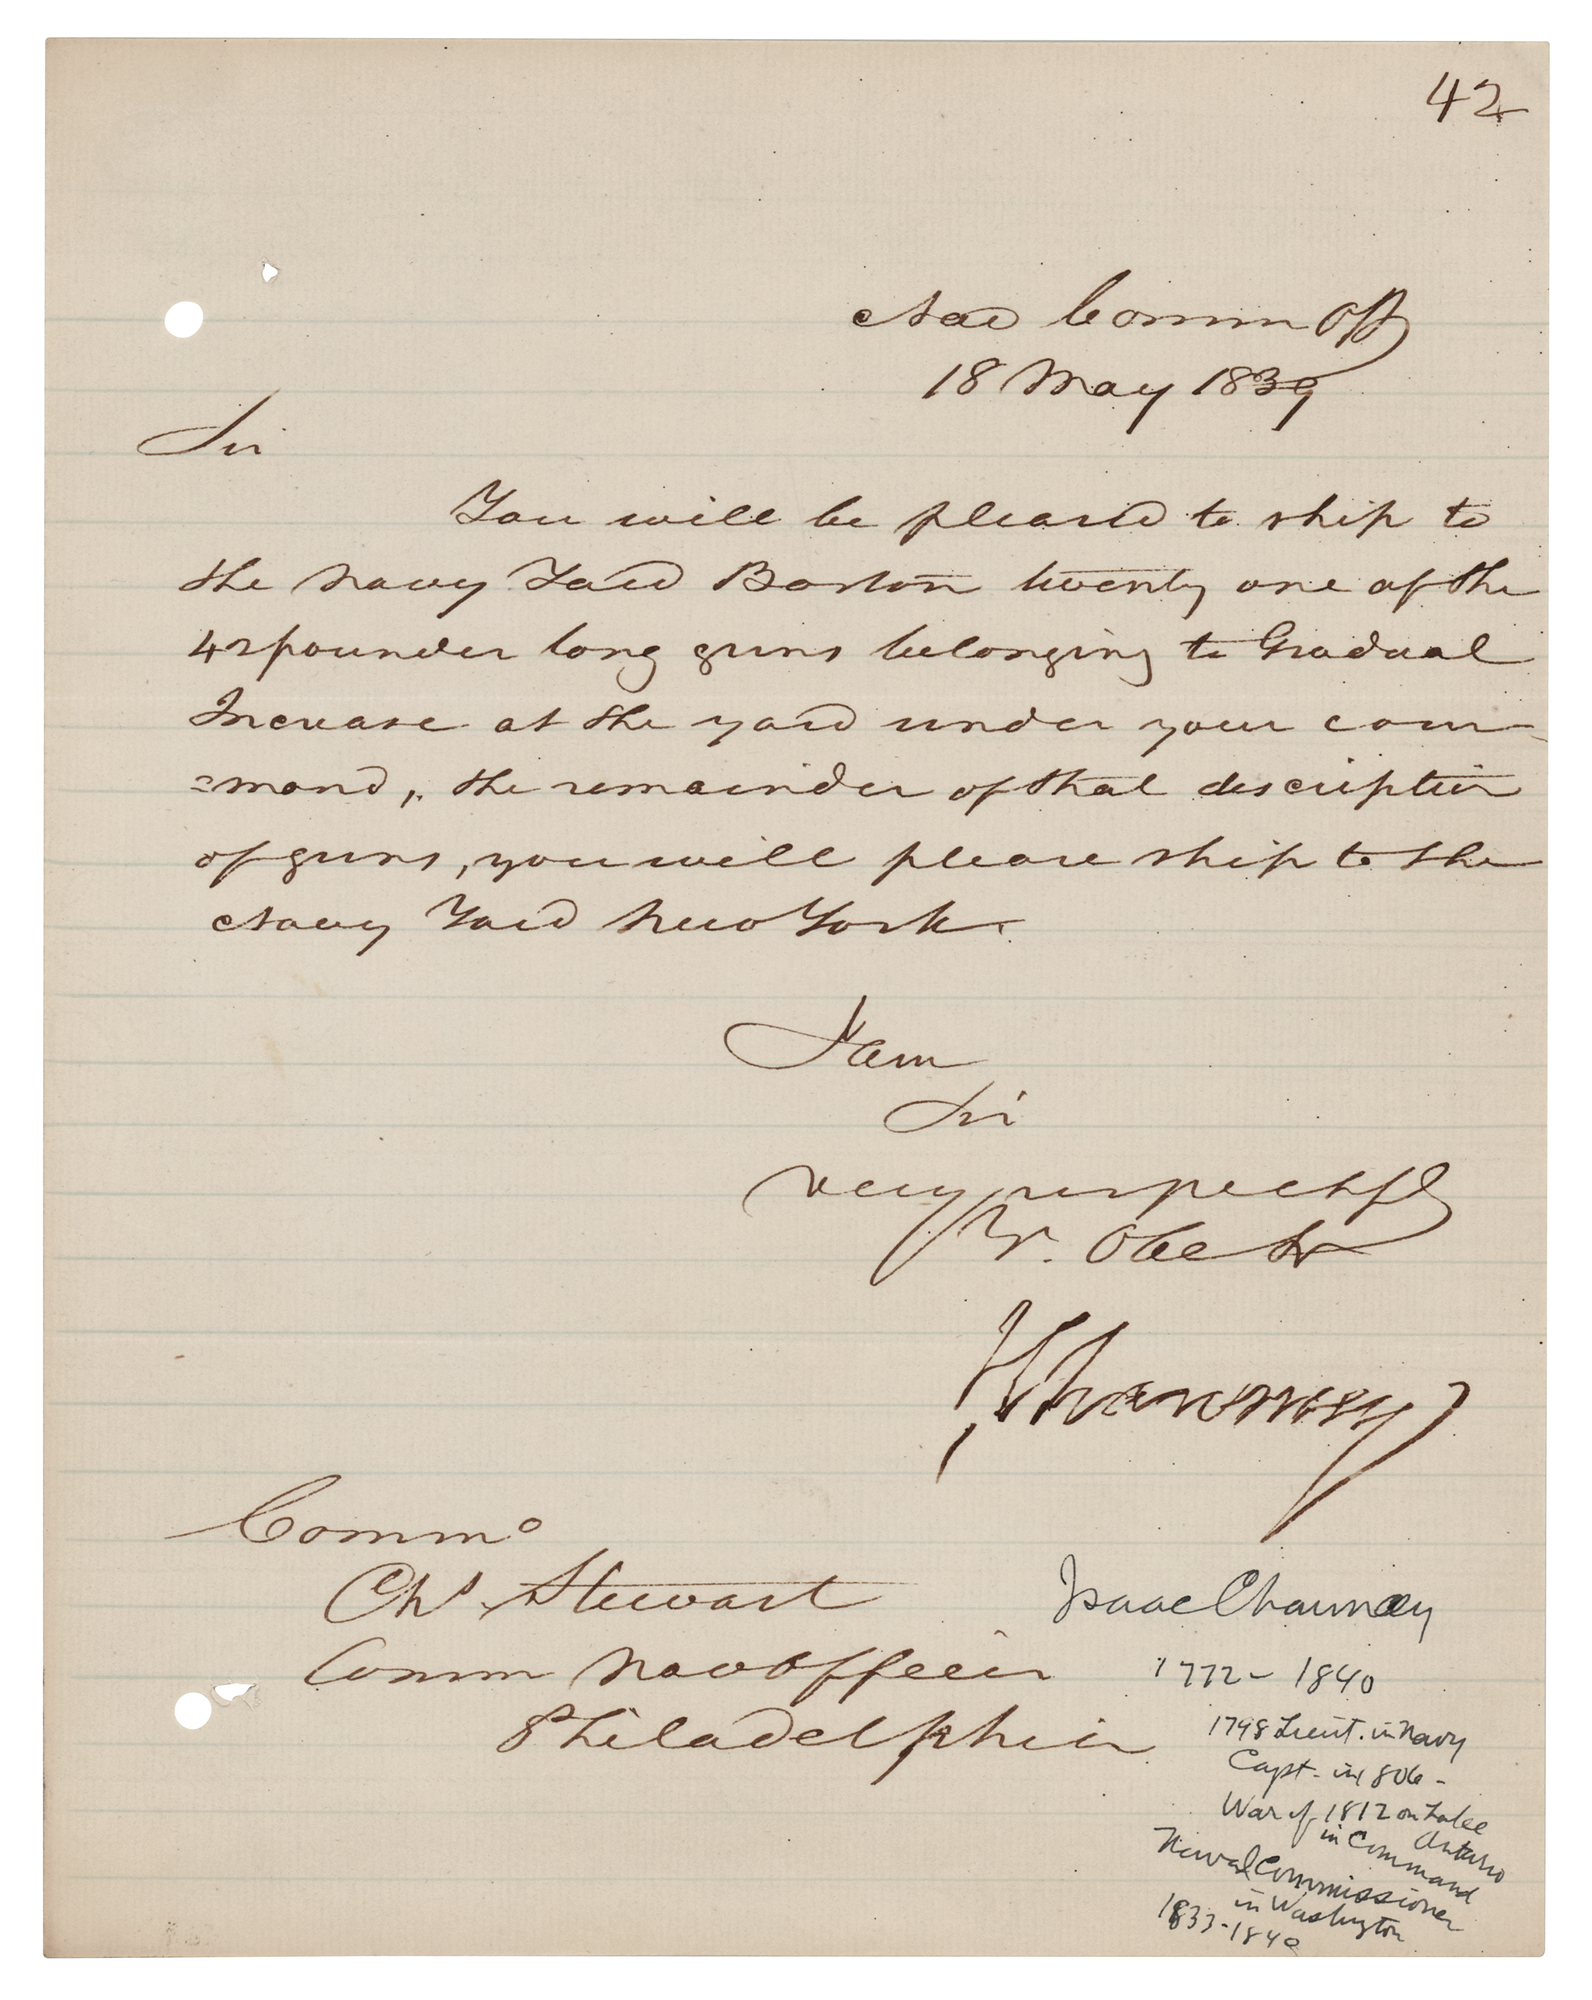 42
Nav Comm Off
18 May 1839
Sir
You will be pleased to ship to
the Navy Yard Boston twenty one of the
42 pounder long guns belonging to Gradual
Increase at the yard under your com-
=mand, the remainder of that description
of guns, you will please ship to the
Navy Yard New York.
I am
Sir
very respectfy
Yr. Obe St
I Chauncey
Commo
Chs. Stewart
Comm Nav Officer
Philadelphia
Isaac Chauncey
1772 - 1840
1798 Lieut. in Navy
Capt. in 1806 -
War of 1812 on Lake
Ontario
in Command
Naval Commissioner
in Washington
1833-1840